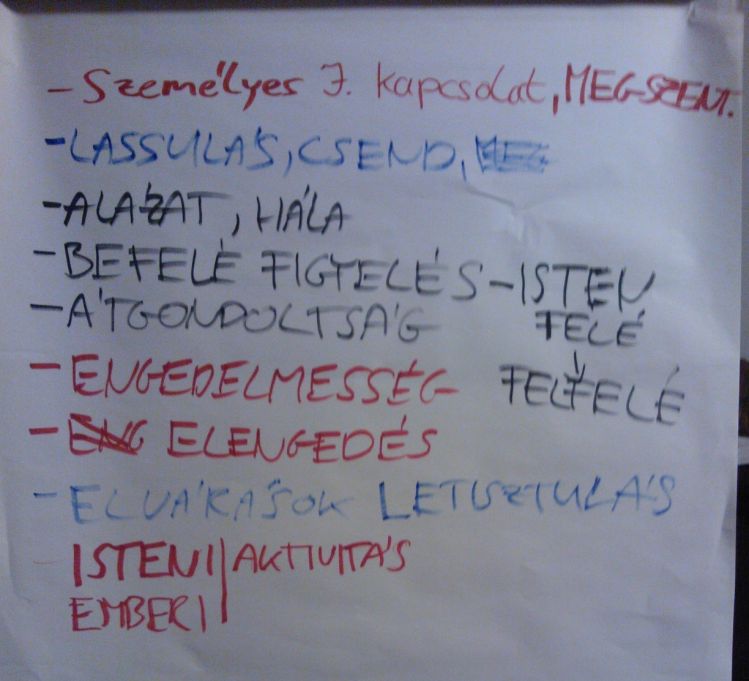 - Személyes J. kapcsolat, MEGSZENT.
- LASSULÁS, CSEND,
- ALÁZAT, HÁLA
- BEFELÉ FIGYELÉS - ISTEN
FELÉ
- ÁTGONDOLTSÁG
FELFELÉ
- ENGEDELMESSÉG
- ENG ELENGEDÉS
- ELVÁRÁSOK LETISZTULÁS
ISTENI | AKTIVITÁS
EMBERI |